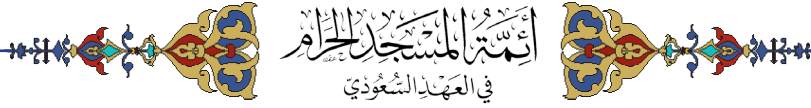 أَئِمَّةُ المَسْجِدِ الحَرَامِ
فِي العَهْدِ السُّعُودِيّ